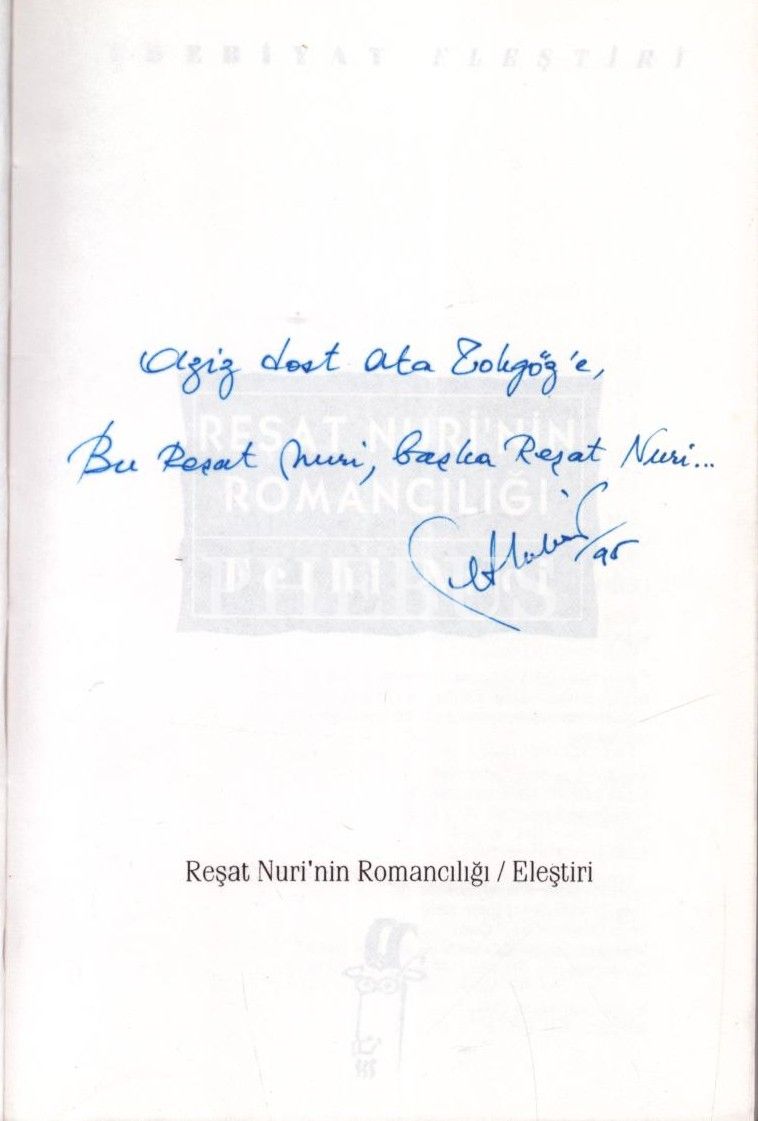 EDEBİYAT ELEŞTİRİ
Aziz dost Ata Tokgöz'e,
Bu Reşat Nuri, başka Reşat Nuri...
REŞAT NURİ'NİN
ROMANCILIĞI
/95
Reşat Nuri'nin Romancılığı / Eleştiri